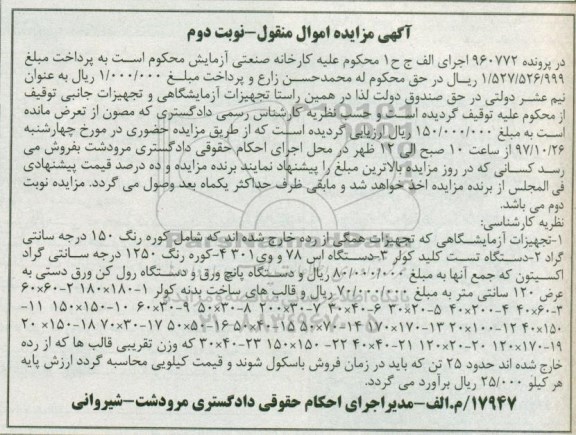 آگهی مزایده اموال منقول-نوبت دوم
در پرونده ۹۶۰۷۷۲ اجرای الف ج ح۱ محکوم علیه کارخانه صنعتی آزمایش محکوم است به پرداخت مبلغ
۱/۵۲۷/۵۲۶/۹۹۹ ریـال در حق محکوم له محمدحسن زارع و پرداخت مبلـغ ۱/۰۰۰/۰۰۰ ریال به عنوان
نیم عشـر دولتی در حق صندوق دولت لذا در همین راستا تجهیزات آزمایشگاهی و تجهیزات جانبی توقیف
از محکوم علیه توقیف گردیده است و حسب نظریه کارشناس رسمی دادگستری که مصون از تعرض مانده
است به مبلغ ۱۵۰/۰۰۰/۰۰۰ ریال ارزیابی گردیده است که از طریق مزایده حضوری در مورخ چهارشنبه
۹۷/۱۰/۲۶ از ساعت ۱۰ صبح الی ۱۲ ظهر در محل اجرای احکام حقوقی دادگستری مرودشت بفروش می
رسـد کسـانی که در روز مزایده بالاترین مبلغ را پیشنهاد نمایند برنده مزایده و ده درصد قیمت پیشنهادی
فی المجلس از برنده مزایده اخذ خواهد شد و مابقی ظرف حداکثر یکماه بعد وصول می گردد. مزایده نوبت
دوم می باشد.
نظریه کارشناسی:
۱-تجهیزات آزمایشـگاهی که تجهیزات همگی از رده خارج شده اند که شامل کوره رنگ ۱۵۰ درجه سانتی
گراد ۲-دستگاه تسـت کلید کولر ۳-دستگاه اس ۷۸ و وی۳۰۱ ۴-کوره رنگ ۱۲۵۰ درجه سـانتی گراد
اکسیتون که جمع آنها به مبلغ ۸۰/۰۰۰/۰۰۰ ریال و دستگاه پانچ ورق و دستگاه رول کن ورق دستی به
عرض ۱۲۰ سانتی متر به مبلغ ۷۰/۰۰۰/۰۰۰ ریال و قالب های ساخت بدنه کولر ۱-۱۸۰×۱۸۰ ۲-۶۰×۶۰
خارج شده اند حدود ۲۵ تن که باید در زمان فروش باسکول شوند و قیمت کیلویی محاسبه گردد ارزش پایه
هر کیلو ۲۵/۰۰۰ ریال برآورد می گردد.
۱۷۹۴۷/م.الف-مدیراجرای احکام حقوقی دادگستری مرودشت-شیروانی